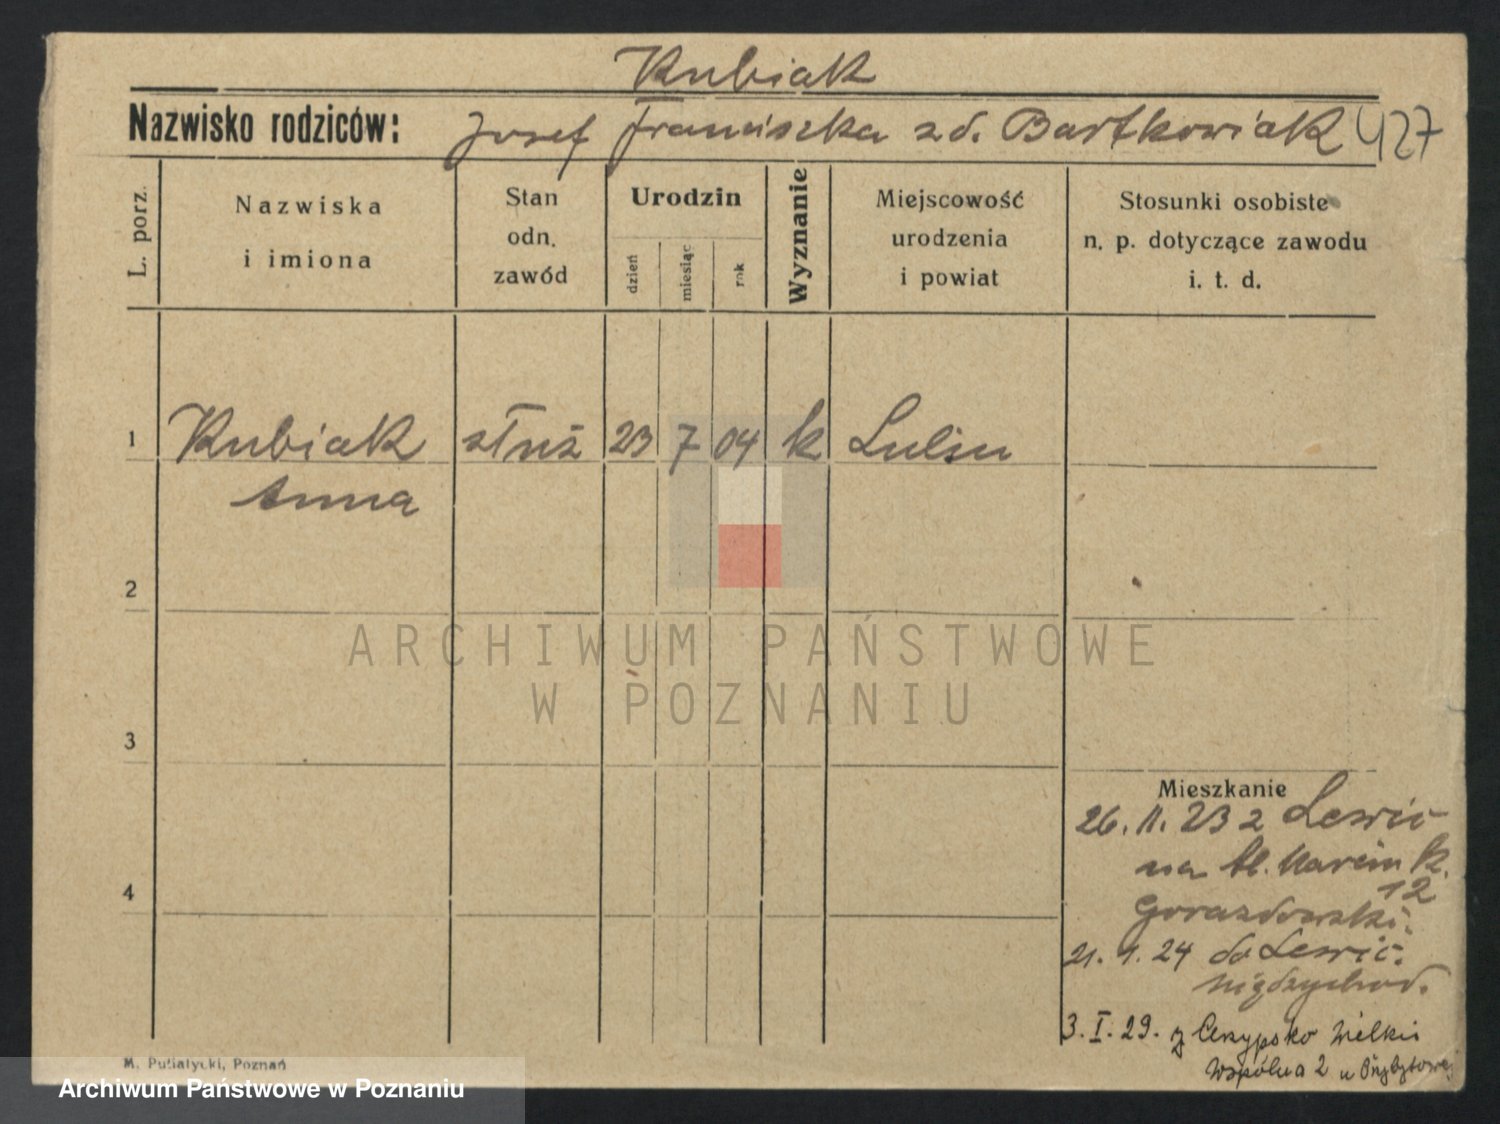 Kubiak
Nazwisko rodziców: Josef Franciszka zd. Bartkowiak 427
L. porz.
Nazwiska
i imiona
Stan
odn.
zawód
Urodzin
dzień
miesiąc
rok
Wyznanie
Miejscowość
urodzenia
i powiat
Stosunki osobiste
n. p. dotyczące zawodu
i. t. d.
1 Kubiak służ 23 7 04 k Lulin
Anna
2
3
4
Mieszkanie
26. 11. 23 z Lewic
na św. Marcin
12
21. 1. 24 do Lewic.
międzychod.
3. I. 29. z Wielki
Wspólna 2 u
M. Putiatycki, Poznań
ARCHIWUM PAŃSTWOWE
W POZNANIU
Archiwum Państwowe w Poznaniu